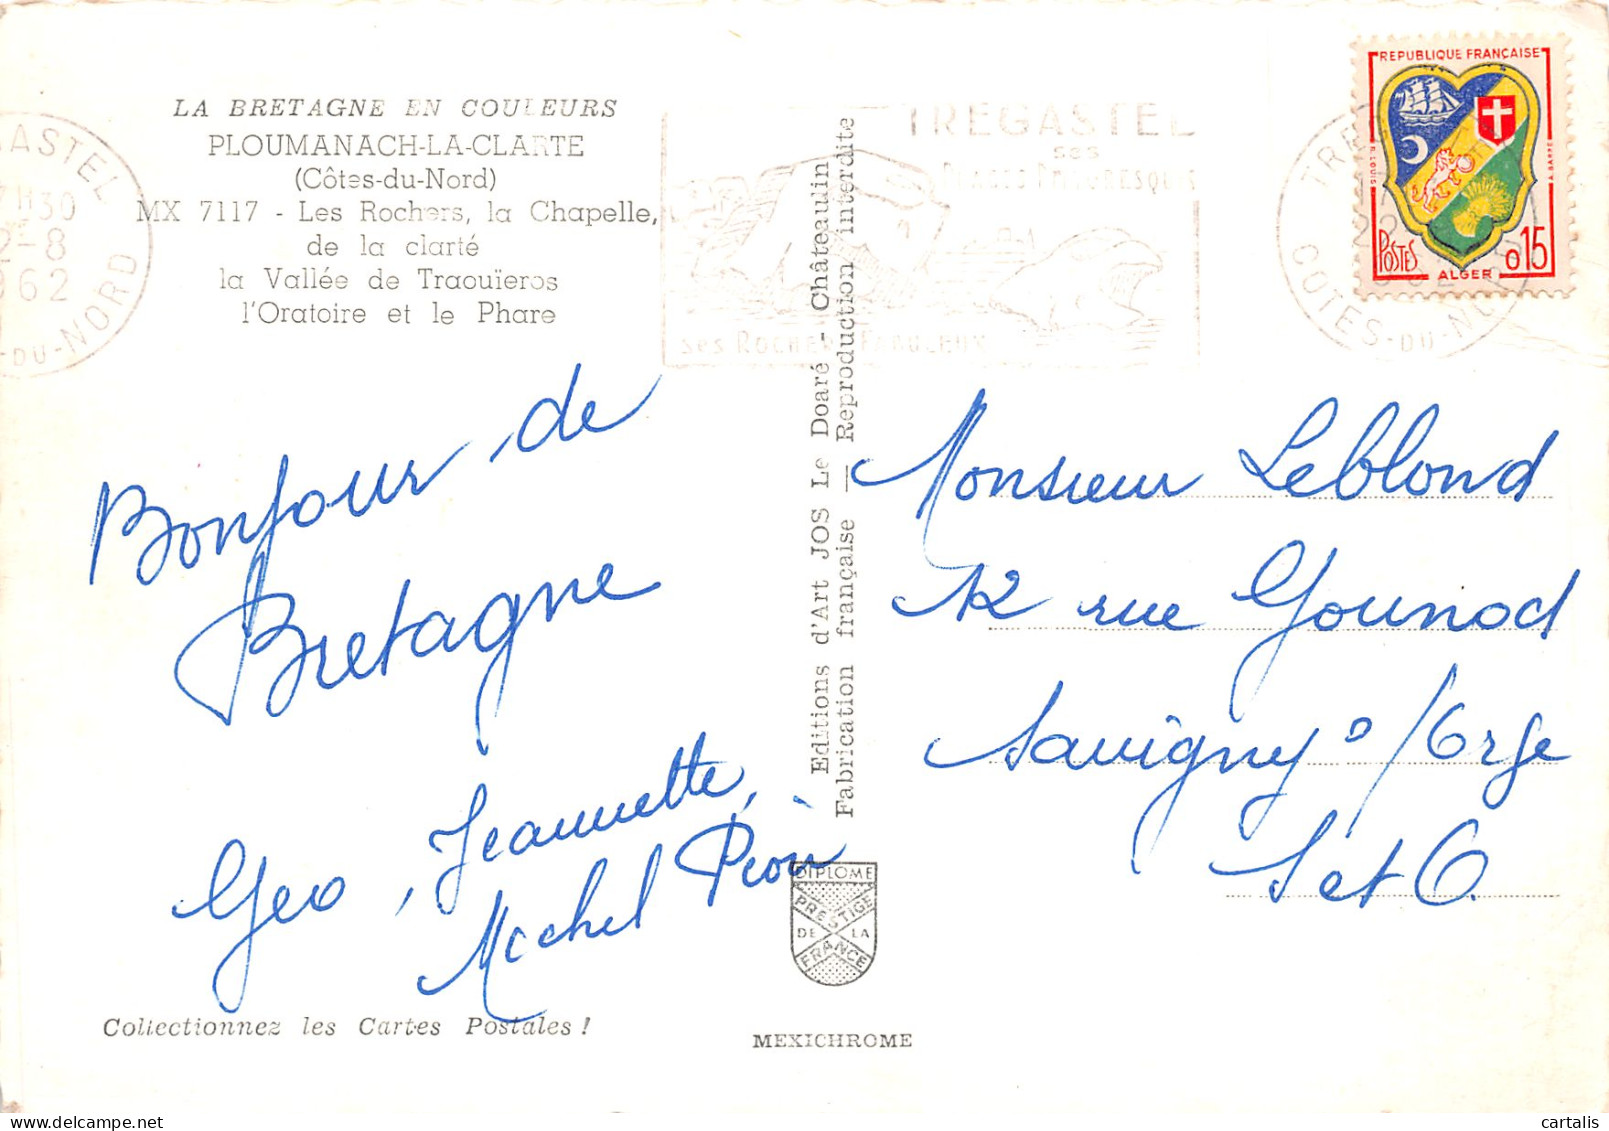 LA BRETAGNE EN COULEURS
PLOUMANACH-LA-CLARTE
(Côtes-du-Nord)
MX 7117 - Les Rochers, la Chapelle,
de la clarté
la Vallée de Traouïeros
l'Oratoire et le Phare
Bonjour de
Bretagne
Geo, Jeannette,
Michel
Collectionnez les Cartes Postales !
GASTEL
7H30
2-8
962
-DU-NORD
TREGASTEL
ses
PLAGES PITTORESQUES
ses ROCHERS FABULEUX
Editions d'Art JOS Le Doaré - Châteaulin
Fabrication française — Reproduction interdite
DIPLOME
PRESTIGE
DE LA
FRANCE
MEXICHROME
REPUBLIQUE FRANÇAISE
POSTES
ALGER
0,15
TRE
22
COTES-DU-NORD
Monsieur Leblond
12 rue Gounod
Savigny s/Orge
S et O.
cartalis